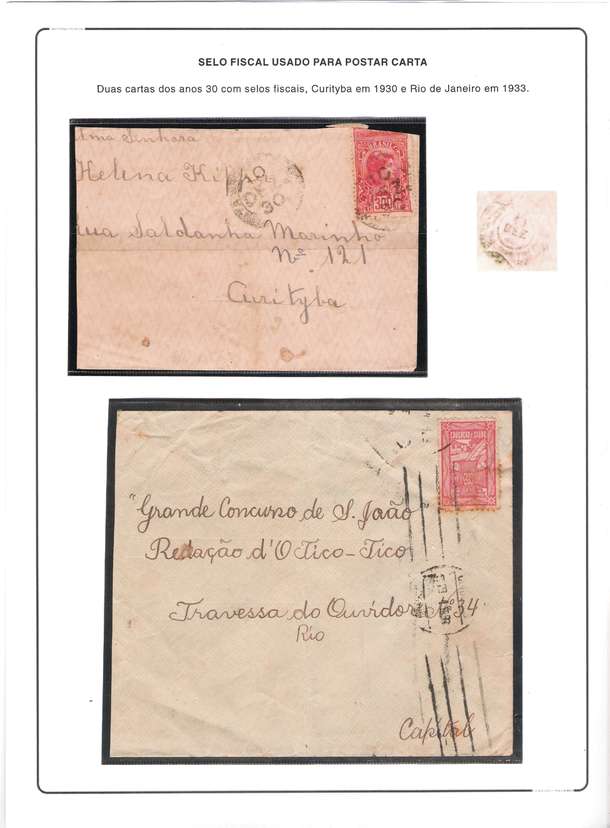 SELO FISCAL USADO PARA POSTAR CARTA
Duas cartas dos anos 30 com selos fiscais, Curityba em 1930 e Rio de Janeiro em 1933.
Senhora
Helena
BRASIL
300
30
Rua Saldanha Marinho
Nº 121
Curityba
EDUCAÇÃO E SAUDE
"Grande Concurso de S. João
Redação d'O Tico-Tico
Travessa do Ouvidor nº 34
Rio
Capital